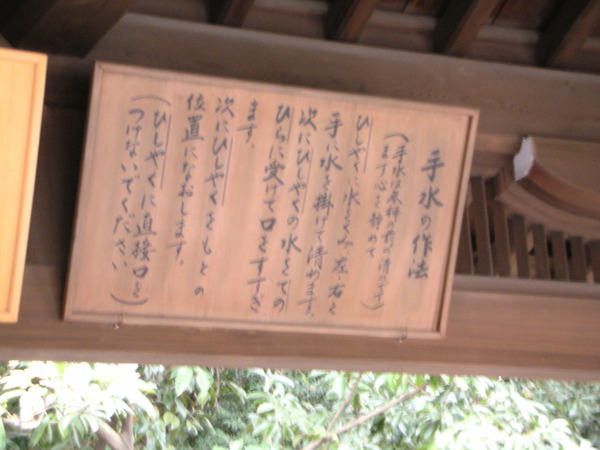 手水の作法
(手水は参拝の前の清めです)
まず心を静めて
ひしゃくに水をくみ、左、右と
手に水を掛けて清めます。
次にひしゃくの水をての
ひらに受けて口をすすぎ
ます。
次にひしゃくをもとの
位置になおします。
(ひしゃくに直接口を
つけないでください)